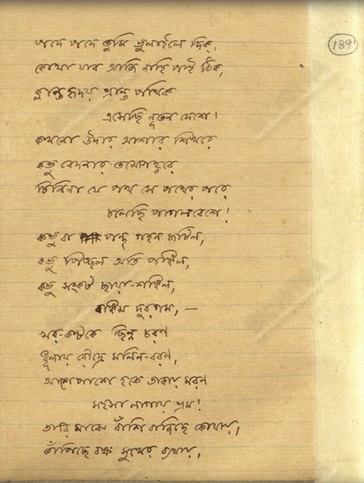 189
পদে পদে তুমি ভুলাইলে দিক,
কোথা যাব আজি নাহি পাই ঠিক,
ক্লান্তহৃদয় ভ্রান্ত পথিক
এসেছি নূতন দেশে!
কখনো উদার আশার শিখরে
কভু বেদনার তমোগহ্বরে
চিনিনা যে পথ সে পথের পরে
চলেছি পাগলবেশে!
কভু বা পন্থ গহন জটিল,
কভু পিচ্ছল অতি পঙ্কিল,
কভু সংকট ছায়া-শঙ্কিল,
বঙ্কিম দুরগম, —
খর-কণ্টকে ছিন্ন চরণ
ধূলায় রৌদ্রে মলিন-বরণ,
আশেপাশে হতে তাকায় মরণ
সহসা লাগায় ভ্রম!
তারি মাঝে বাঁশি বাজিছে কোথায়,
কাঁপিছে বক্ষ সুখের ব্যথায়,